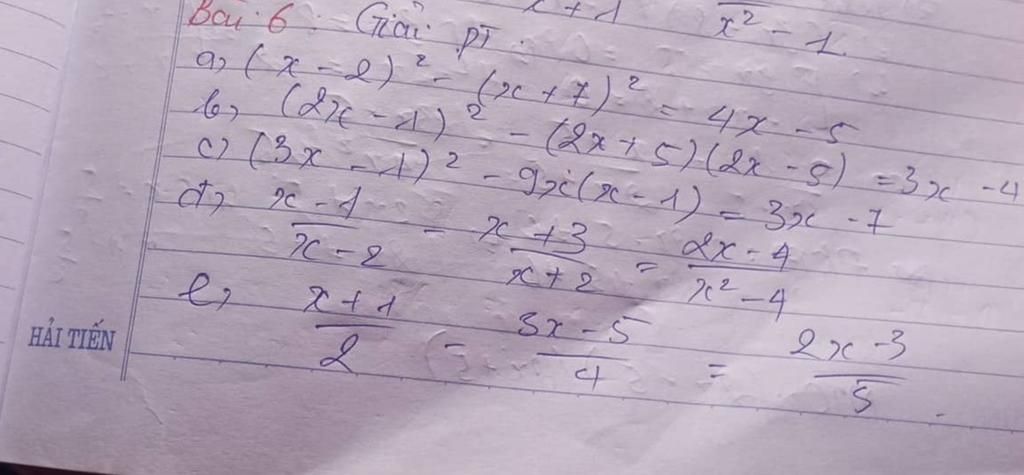 x + 1 x² - 1
Bài 6: Giải PT:
a, (x - 2)² - (x + 7)² = 4x - 5
b, (2x - 1)² - (2x + 5)(2x - 5) = 3x - 4
c) (3x - 1)² - 9x(x - 1) = 3x - 7
d, x - 1 / x - 2 - x + 3 / x + 2 = 2x - 4 / x² - 4
e, x + 1 / 2 - 3x - 5 / 4 = 2x - 3 / 5.
HẢI TIẾN